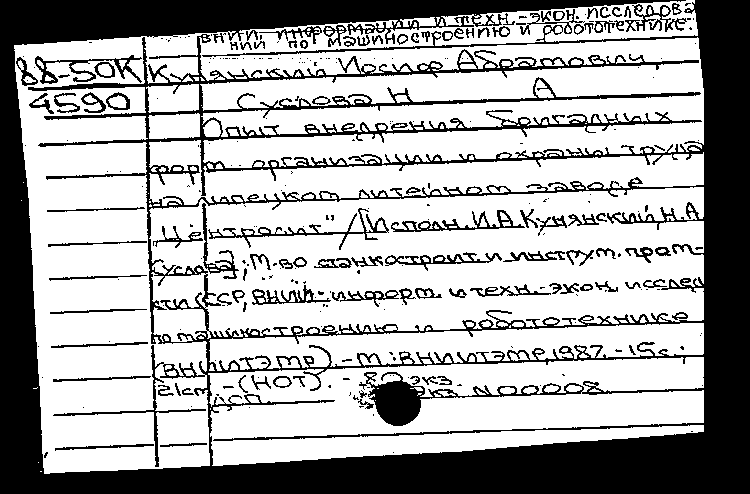 ВНИИ. информации и техн.-экон. исследова
нии по машиностроению и робототехнике.
88-50К Кунянский, Иосиф Абрамович,
4590 Суслова, Н А
Опыт внедрения бригадных
форм организации и охраны труда
на липецком литейном заводе
"Центролит" / [Исполн. И.А. Кунянский, Н.А.
Суслова]; М-во станкостроит и инструм. пром-
сти СССР, ВНИИ информ. и техн.-экон. исслед
по машиностроению и робототехнике
(ВНИИТЭМР). - М.: ВНИИТЭМР, 1987. - 15с.;
21см. - (НОТ). - 80 экз.
ДСП. экз. N00008.